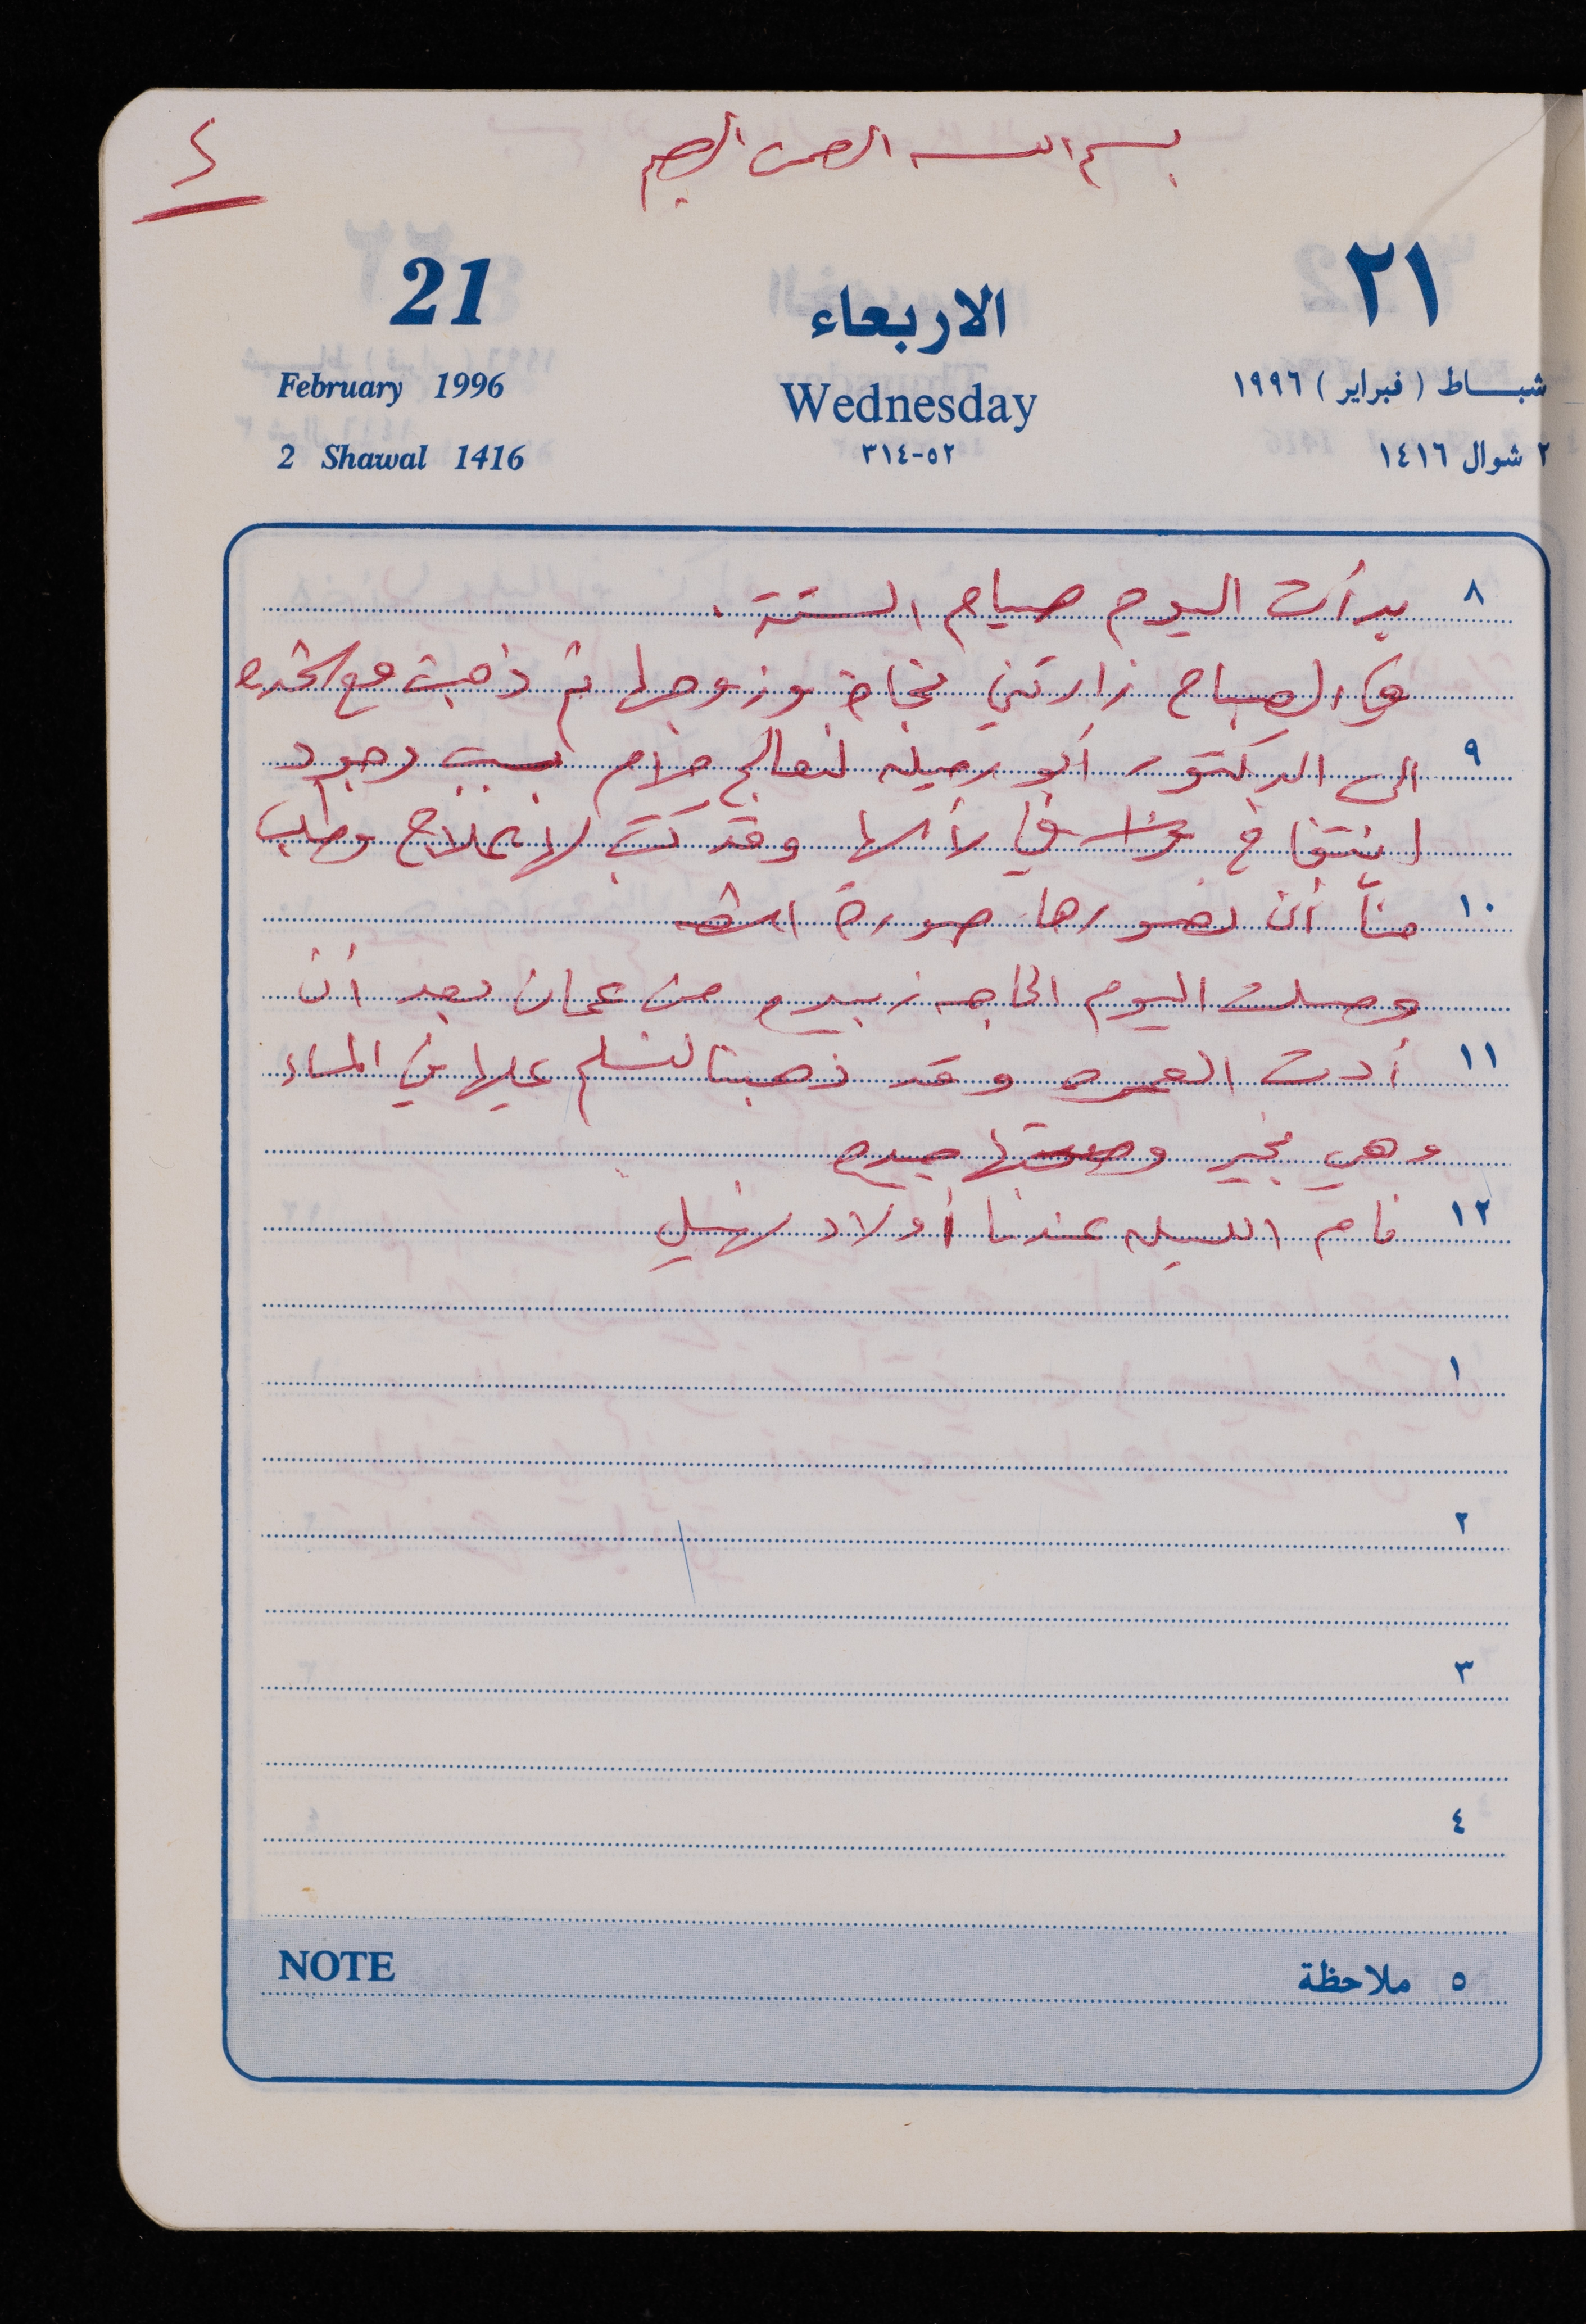 بسم الله الرحمن الرحيم
٢
21
الاربعاء
٢١
February 1996
Wednesday
شباط (فبراير) ١٩٩٦
2 Shawal 1416
٥٢-٣١٤
٢ شوال ١٤١٦
٨ بدأت اليوم صيام الستة.
في الصباح زارتني نجاح وزوجها ثم ذهبت مع
٩ الى الدكتور ابو رميله لنعالج مرام بسبب وجود
انتفاخ في رأسها وقد كتب لها علاج وطلب
١٠ منا أن نصورها صورة
وصلت اليوم الحاجه زبيده من عمان بعد أن
١١ أدت العمره وقد ذهبنا لنسلم عليها في المساء
وهي بخير وصحتها جيده
١٢ نام الليله عندنا أولاد نهيل
١
٢
٣
٤
NOTE
٥ ملاحظة